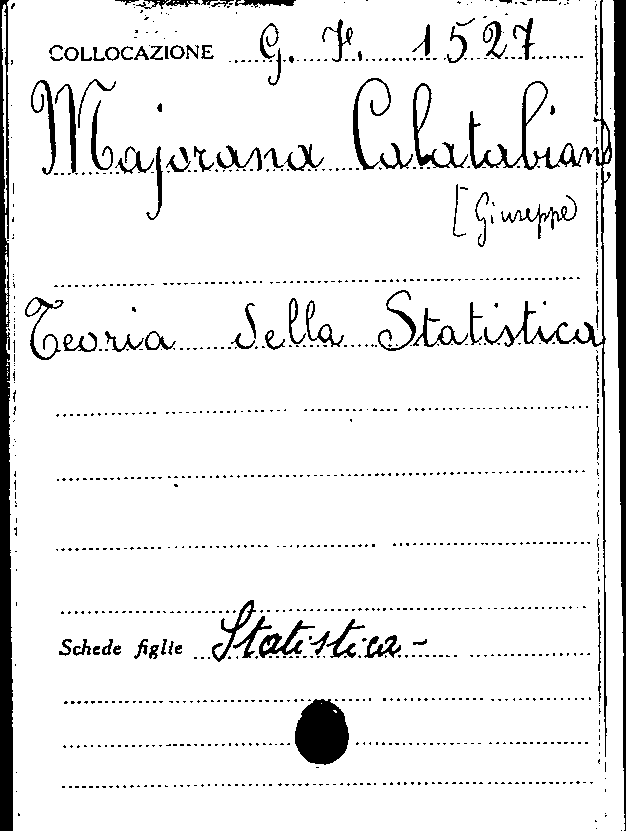 COLLOCAZIONE G. F. 1527
Majorana Calatabiano
[Giuseppe
Teoria della Statistica
Schede figlie Statistica -